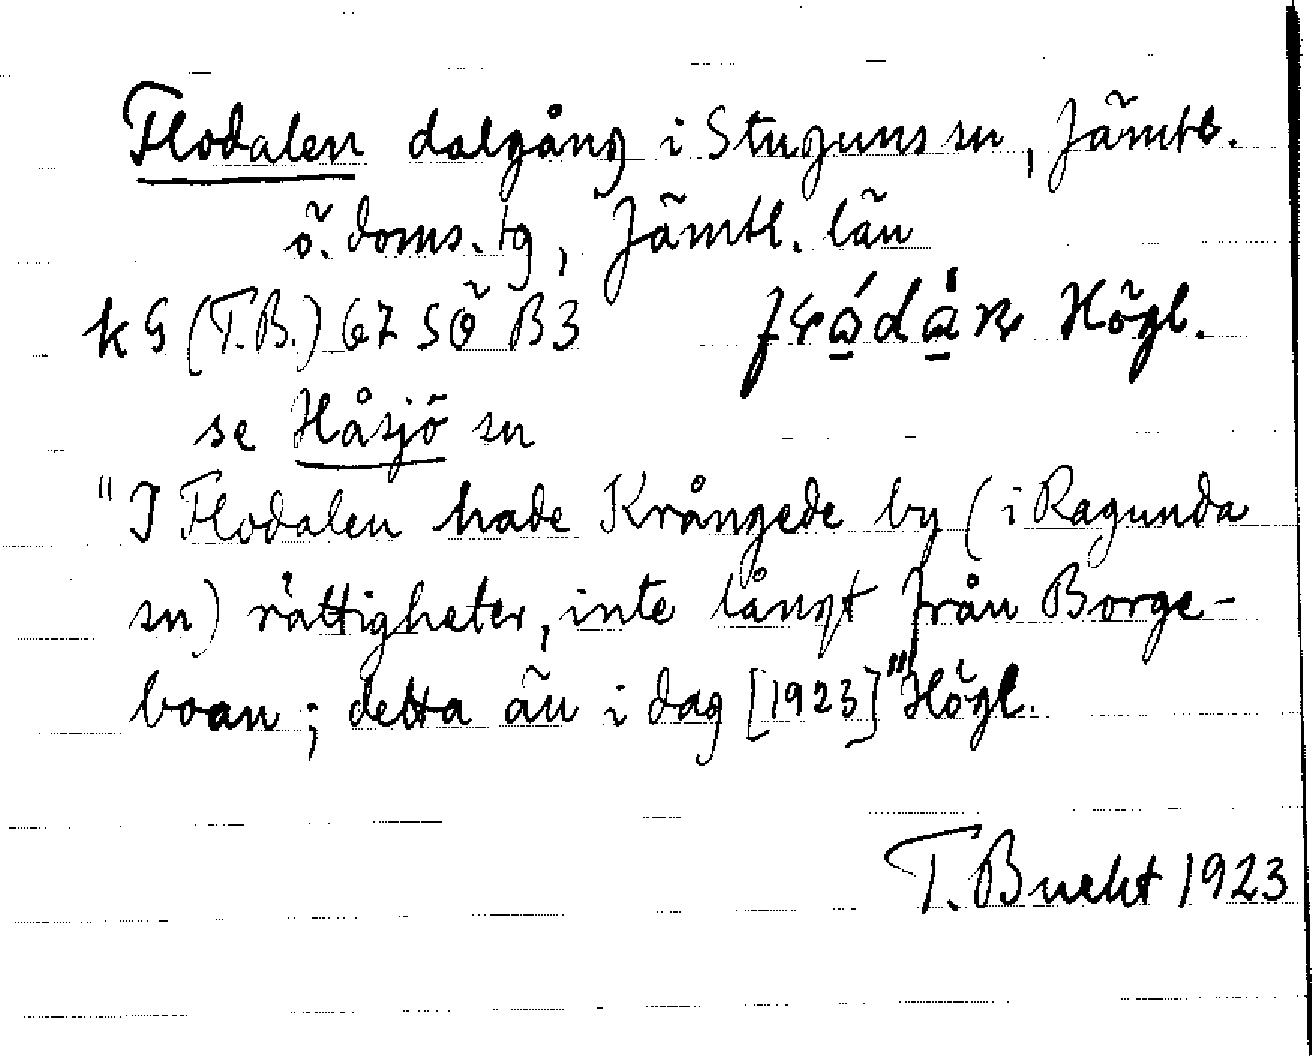 Flodalen dalgång i Stuguns sn, Jämtl.
ö. doms. tg, Jämtl. län
k G (T.B.) 67 SÖ B3 Högl.
se Håsjö sn
"I Flodalen hade Krångede by (i Ragunda
sn) rättigheter, inte långt från Borge-
boan; detta än i dag [1923]" Högl.
T. Bucht 1923